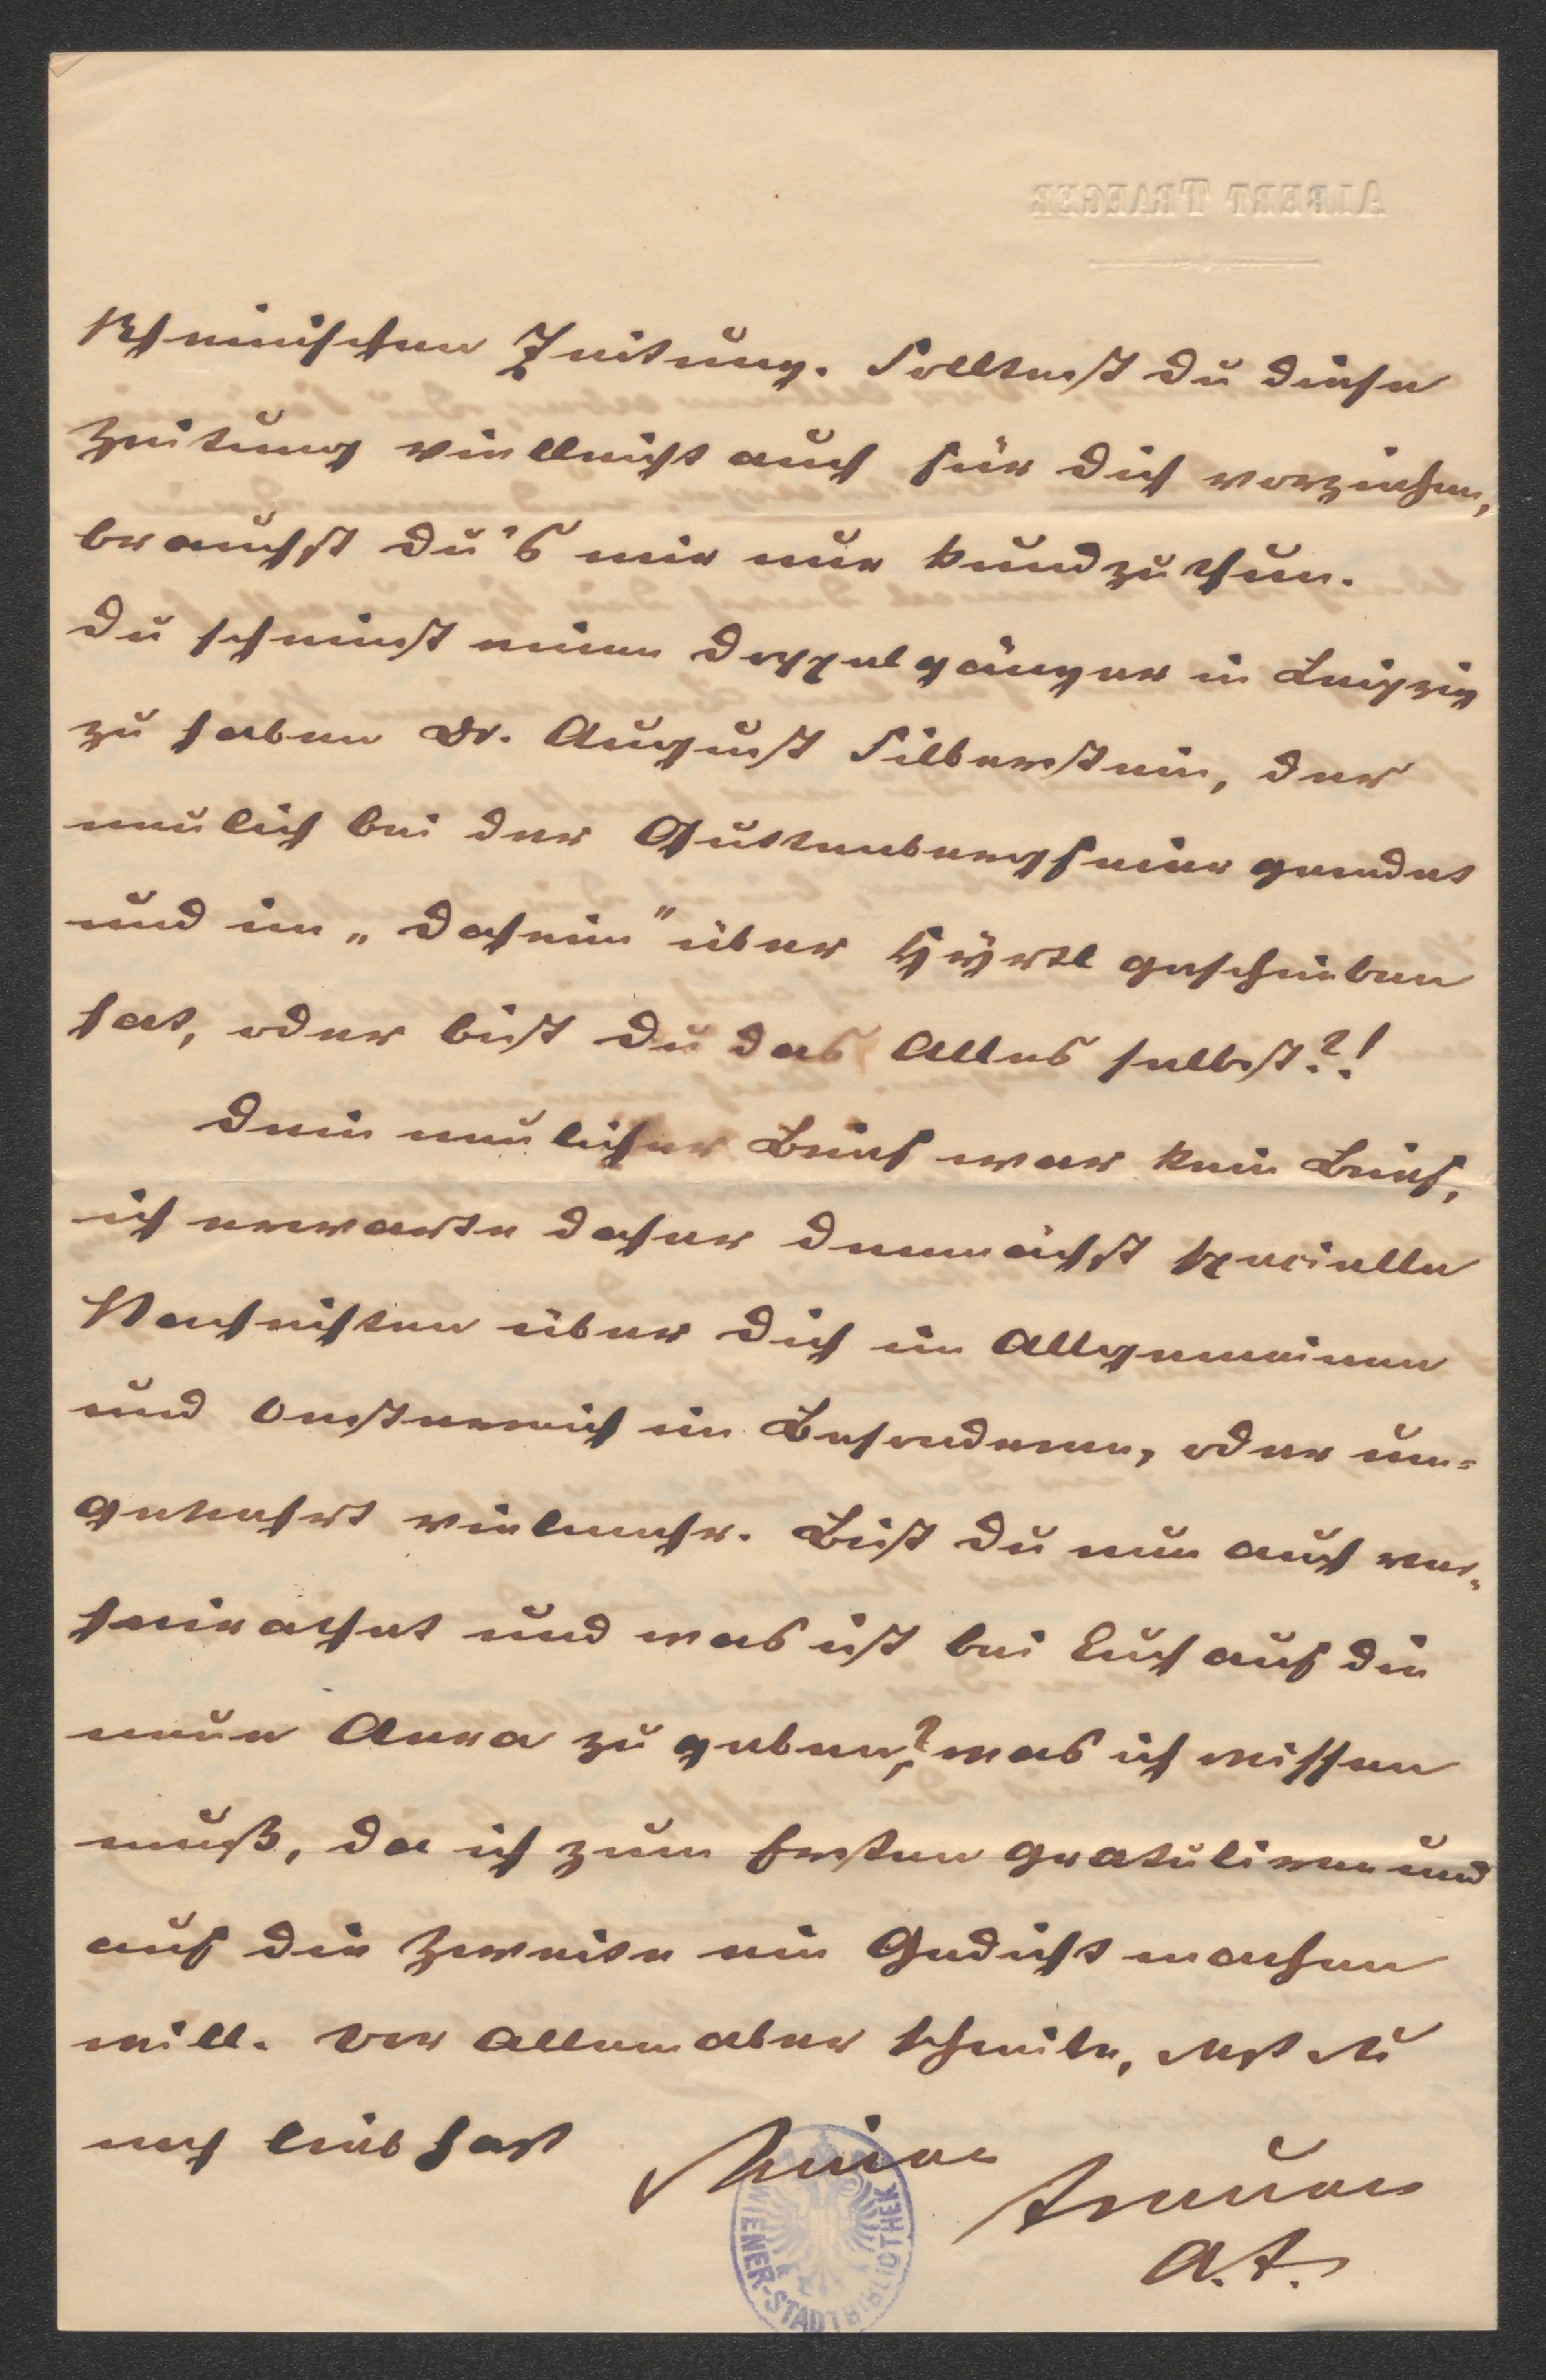 ALBERT TRAEGER
Rheinischen Zeitung. Solltest du diese
Zeitung vielleicht auch für dich vorziehen,
brauchst du's mir nur kundzuthun.
Du scheinst einen Doppelgänger in Leipzig
zu haben Dr. August Silberstein, der
neulich bei der Guttenbergfeier geredet
und im „Daheim" über Hyrtl geschrieben
hat, oder bist du das Alles selbst?!
Dein neulicher Brief war kein Brief,
ich erwarte daher demnächst specielle
Nachrichten über dich im Allgemeinen
und Oesterreich im Besonderen, oder um=
gekehrt vielmehr. Bist du nun auch ver=
heirathet und was ist bei Euch auf die
neue Aera zu geben? was ich wissen
muß, da ich zum Ersten gratuliren und
auf die Zweite ein Gedicht machen
will. Vor Allem aber schreibe, daß du
noch lieb hast
Deinen
treuen
A.T.
WIENER-STADTBIBLIOTHEK